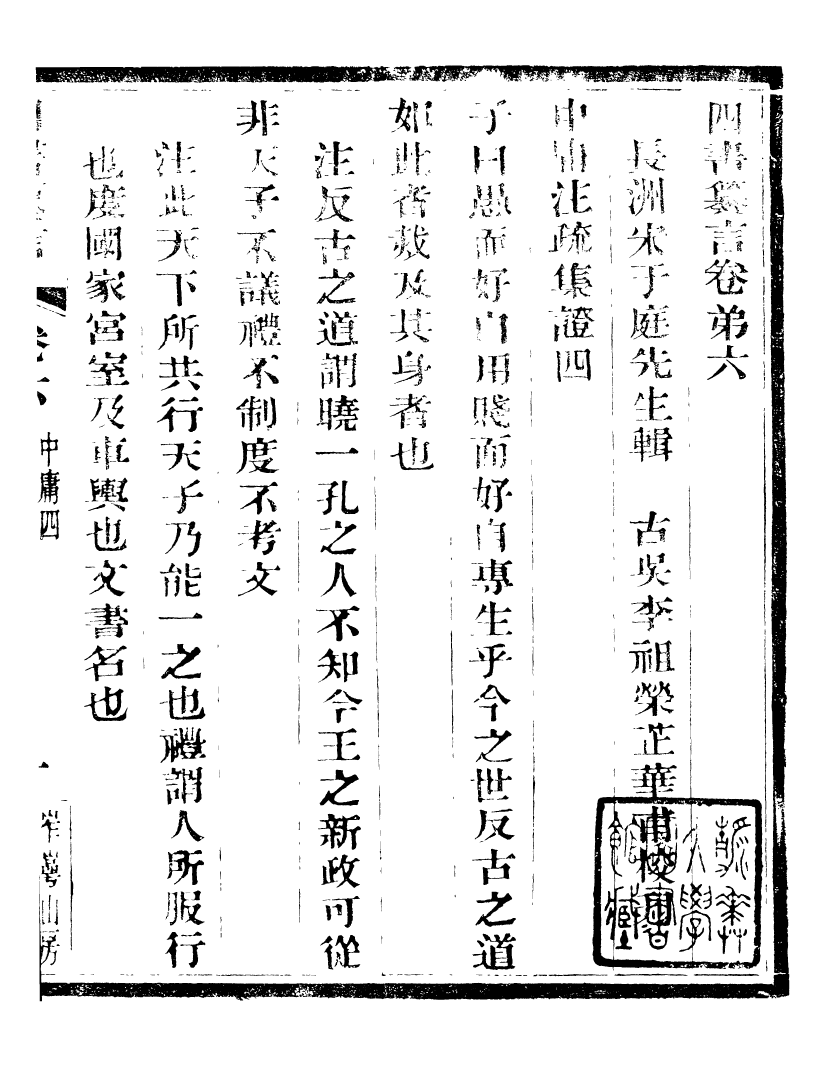 四書纂言卷弟六
長洲宋于庭先生輯　古吳李祖榮芷華甫校
中庸注疏集證四
子曰愚而好自用賤而好自專生乎今之世反古之道
如此者烖及其身者也
注反古之道謂曉一孔之人不知今王之新政可從
非天子不議禮不制度不考文
注此天下所共行天子乃能一之也禮謂人所服行
也度國家宮室及車輿也文書名也
四書纂言　卷六　中庸四　一　岝崿山房